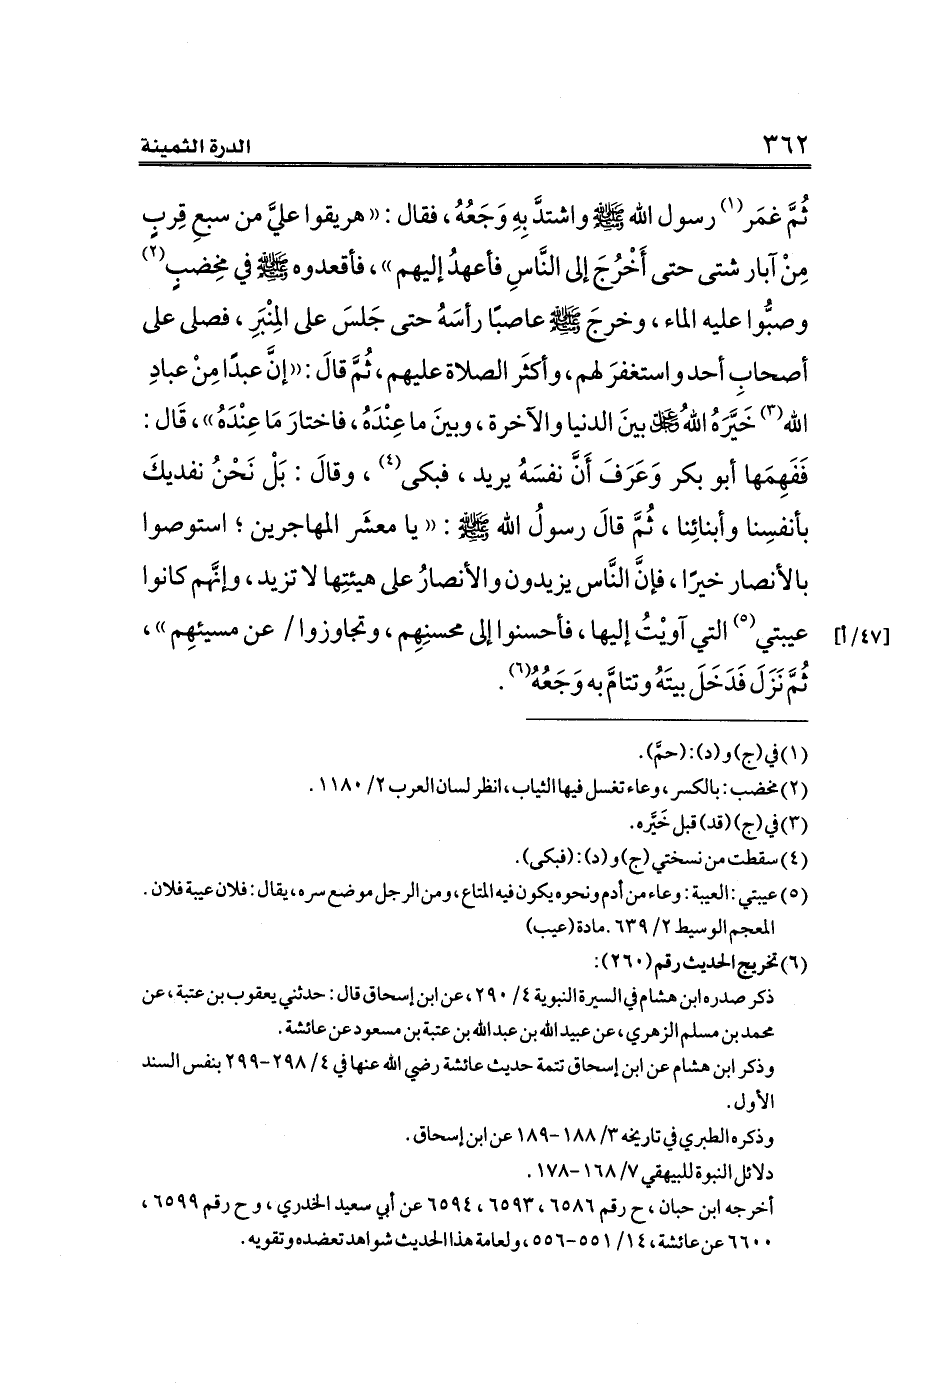 ٣٦٢ الدرة الثمينة
ثُمَّ غمَر(١) رسول الله ﷺ واشتدَّ بِهِ وَجَعُهُ، فقال: «هريقوا عليَّ من سبعِ قِربٍ
مِنْ آبار شتى حتى أَخْرُجَ إلى النَّاسِ فأعهدُ إليهم»، فأقعدوه ﷺ في مِخِضبٍ(٢)
وصبُّوا عليه الماء، وخرجَ ﷺ عاصبًا رأسَهُ حتى جَلسَ على المِنْبَرِ، فصلى على
أصحابِ أحد واستغفرَ لهم، وأكثَر الصلاة عليهم، ثُمَّ قالَ: «إنَّ عبدًا مِنْ عبادِ
الله(٣) خَيَّرَهُ اللهُ ﷻ بينَ الدنيا والآخرة، وبينَ ما عِنْدَهُ، فاختارَ مَا عِنْدَهُ»، قَال:
فَفَهِمَها أبو بكر وَعَرَفَ أَنَّ نفسَهُ يريد، فبكى(٤)، وقالَ: بَلْ نَحْنُ نفديكَ
بأنفسِنا وأبنائِنا، ثُمَّ قالَ رسولُ الله ﷺ: «يا معشَر المهاجرين؛ استوصوا
بالأنصار خيرًا، فإنَّ النَّاس يزيدون والأنصارُ على هيئتِها لا تزيد، وإنَّهم كانوا
عيبتي(٥) التي آويْتُ إليها، فأحسنوا إلى محسنِهِم، وتجاوزوا/ عن مسيئهِم»، [٤٧/أ]
ثُمَّ نَزَلَ فَدَخَلَ بيتَهُ وتتامَّ به وَجَعُهُ(٦).
(١) في (ج) و(د): (حمَّ).
(٢) مخضب: بالكسر، وعاء تغسل فيها الثياب، انظر لسان العرب ٢/ ١١٨٠.
(٣) في (ج) (قد) قبل خَيَّره.
(٤) سقطت من نسختي (ج) و(د): (فبكى).
(٥) عيبتي: العيبة: وعاء من أدم ونحوه يكون فيه المتاع، ومن الرجل موضع سره، يقال: فلان عيبة فلان.
المعجم الوسيط ٢/ ٦٣٩. مادة (عيب)
(٦) تخريج الحديث رقم (٢٦٠):
ذكر صدره ابن هشام في السيرة النبوية ٤/ ٢٩٠، عن ابن إسحاق قال: حدثني يعقوب بن عتبة، عن
محمد بن مسلم الزهري، عن عبيد الله بن عبد الله بن عتبة بن مسعود عن عائشة.
وذكر ابن هشام عن ابن إسحاق تتمة حديث عائشة رضي الله عنها في ٤/ ٢٩٨-٢٩٩ بنفس السند
الأول.
وذكره الطبري في تاريخه ٣/ ١٨٨-١٨٩ عن ابن إسحاق.
دلائل النبوة للبيهقي ٧/ ١٦٨-١٧٨.
أخرجه ابن حبان، ح رقم ٦٥٨٦، ٦٥٩٣، ٦٥٩٤ عن أبي سعيد الخدري، وح رقم ٦٥٩٩،
٦٦٠٠ عن عائشة، ١٤/ ٥٥١-٥٥٦، ولعامة هذا الحديث شواهد تعضده وتقويه.